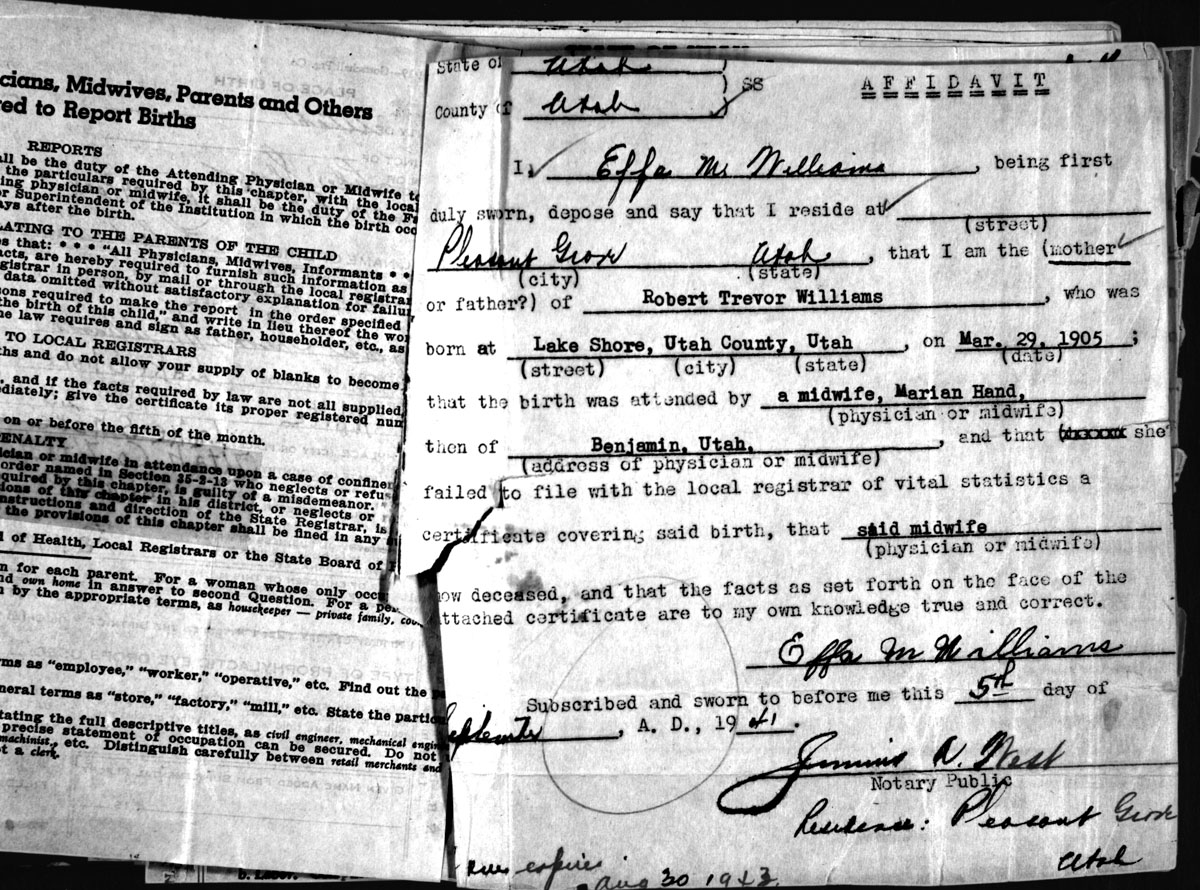 cians, Midwives, Parents and Others
ed to Report Births
REPORTS
all be the duty of the Attending Physician or Midwife to
the particulars required by this chapter, with the local
ing physician or midwife, it shall be the duty of the
or Superintendent of the Institution in which the birth occ
ays after the birth.
LATING TO THE PARENTS OF THE CHILD
s that: • • • "All Physicians, Midwives, Informants • •
acts, are hereby required to furnish such information as
gistrar in person, by mail or through the local registrar
data omitted without satisfactory explanation for failur
ons required to make the report in the order specified
the birth of this child," and write in lieu thereof the wor
he law requires and sign as father, householder, etc., as
TO LOCAL REGISTRARS
hs and do not allow your supply of blanks to become
, and if the facts required by law are not all supplied,
diately; give the certificate its proper registered num
on or before the fifth of the month.
ENALTY
ician or midwife in attendance upon a case of confinem
order named in Section 35-2-13 who neglects or refu
quired by this chapter, is guilty of a misdemeanor.
ions of this chapter in his district, or neglects or
nstructions and direction of the State Registrar, is
the provisions of this chapter shall be fined in any
d of Health, Local Registrars or the State Board of
n for each parent. For a woman whose only occu
nd own home in answer to second Question. For a pe
n by the appropriate terms, as housekeeper — private family, coo
rms as "employee," "worker," "operative," etc. Find out the
neral terms as "store," "factory," "mill," etc. State the partic
tating the full descriptive titles, as civil engineer, mechanical engin
precise statement of occupation can be secured. Do not
machinist, etc. Distinguish carefully between retail merchants and
ot a clerk.
State of Utah
County of Utah ) SS
AFFIDAVIT
I, Effa M Williams, being first
duly sworn, depose and say that I reside at
(street)
Pleasant Grove Utah, that I am the (mother
(city) (state)
or father?) of Robert Trevor Williams, who was
born at Lake Shore, Utah County, Utah, on Mar. 29, 1905;
(street) (city) (state) (date)
that the birth was attended by a midwife, Marian Hand,
(physician or midwife)
then of Benjamin, Utah, and that she
(address of physician or midwife)
failed to file with the local registrar of vital statistics a
certificate covering said birth, that said midwife
(physician or midwife)
now deceased, and that the facts as set forth on the face of the
attached certificate are to my own knowledge true and correct.
Effa M Williams
Subscribed and sworn to before me this 5th day of
September, A. D., 1941.
A. West
Notary Public
Residence: Pleasant Grove
Utah
copies
Aug 30 1943